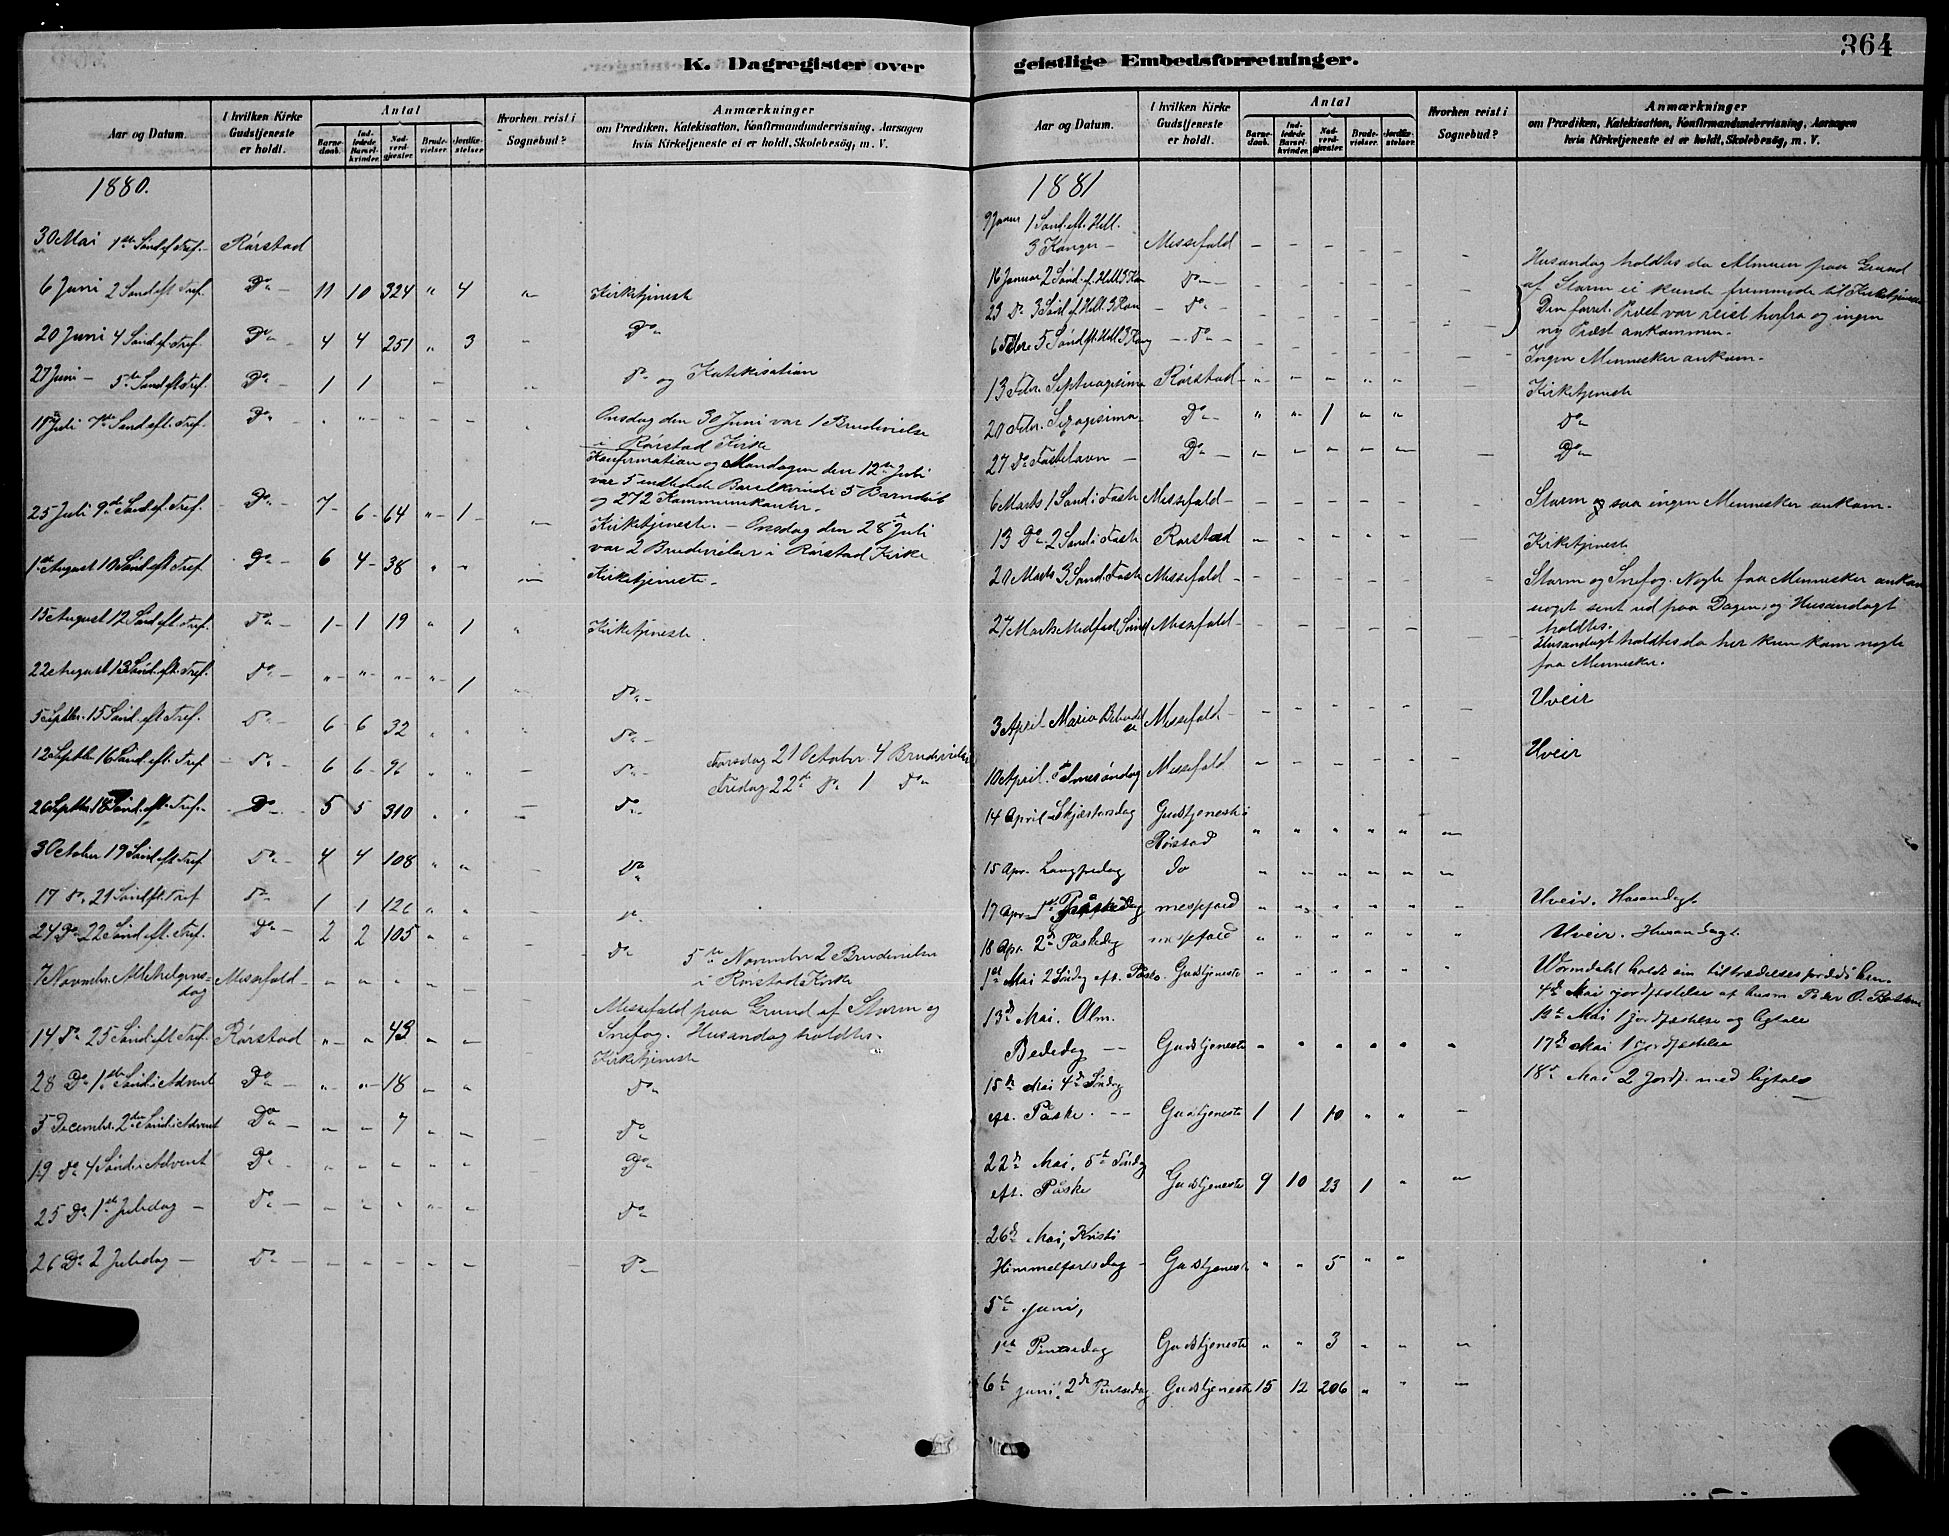 K. Dagregister over
Aar og Datum.
I hvilken Kirke Gudstjeneste er holdt.
Antal
Barne-daab.
Ind-ledede Barsel-kvinder.
Nad-verd-gjester.
Brude-vielser.
Jordfæ-stelser.
Hvorhen reist i Sognebud?
Anmærkninger
om Prædiken, Katekisation, Konfirmandundervisning, Aarsagen
hvis Kirketjeneste ei er holdt, Skolebesøg, m. V.
1880.
30 Mai 1ste Sønd ef Tref. Rørstad
6 Juni 2 Sønd eft Tref. Do 11 10 324 " 4 " Kirketjeneste
20 Juni 4 Sønd ef Tref. Do 4 4 251 " 3 " Do
27 Juni 5te Sønd eft Tref. Do 1 1 - " Do og Katekisation
Juli 7de Sønd eft. Tref. Do " " - - - Onsdag den 30 Juni var 1 Brudevielse
i Rørstad Kirke
Konfirmation og Mandagen den 12te Juli
var 5 indledede Barselkvinder 5 Barnedåb
og 272 Kommunikanter.
25 Juli 9de Sønd ef. Tref. Do 7 6 64 " 1 - Kirketjeneste. - Onsdag den 28de Juli
var 2 Brudevielser i Rørstad Kirke
1ste August 10 Sønd eft Tref. Do 6 4 38 " " - Kirketjeneste.
15 August 12 Sønd eft. Tref. Do 1 1 19 " 1 " Kirketjeneste.
22 August 13 Sønd. eft. Tref. Do " " " " 1 " Do
5 Septbr. 15 Sønd. eft Tref. Do 6 6 32 " " Do
12 Septbr 16 Sønd. eft. Tref. Do 6 6 96 " " - Do Torsdag 21 October 4 Brudevielser
Fredag 22de Do 1 Do
26 Septbr. 18 Sønd. eft. Tref. Do 5 5 310 " " - Do
3 October 19 Sønd eft Tref. Do 4 4 108 " " - Do
17 Do 21 Sønd eft. Tref Do 1 1 126 " " - Do
24 Do 22 Sønd eft. Tref. Do 2 2 105 " " - Do 5te November 2 Brudevielser
i Rørstad Kirke
7 Novembr. Allehelgens-
dag Messefald - " " " " - Messefald paa Grund af Storm og
Snefog. Husandag holdtes.
14 Do 25 Sønd eft Tref. Rørstad " " 43 - - Kirketjeneste
28 Do 1ste Sønd i Advent Do " " 18 - " Do
5 Decembr. 2den Sønd i Advent Do - - 7 " - - Do
19 Do 4 Sønd i Advent Do " " " " " Do
25 Do 1ste Juledag - Do - " " " - " Do
26 Do 2 Juledag - Do - - - - - - Do
364
geistlige Embedsforretninger.
Aar og Datum.
I hvilken Kirke Gudstjeneste er holdt.
Antal
Barne-daab.
Ind-ledede Barsel-kvinder.
Nad-verd-gjester.
Brude-vielser.
Jordfæ-stelser.
Hvorhen reist i Sognebud?
Anmærkninger
om Prædiken, Katekisation, Konfirmandundervisning, Aarsagen
hvis Kirketjeneste ei er holdt, Skolebesøg, m. V.
1881
9 Januar 1 Sønd. eft. Hell.
3 Konger - Messefald - - - - - - Husandag holdtes da Almuen paa Grund
af Storm ei kunde fremmøde til Kirketjeneste
16 Januar 2 Sønd. ef. Hell. 3 Kon Do - - - - - -
23 Do 3 Sønd ef Hell. 3 Kon - Do - - - - - - Den forret. Præst var reist herfra og ingen
ny Præst ankommen.
6 Febr. 5 Sønd eft. Hell 3 Kong - Do - - - - - - Ingen Mennesker ankom.
13 Febr. Septuagisima Rørstad - " - - " " - Kirketjeneste
20 Febr. Sexagisima Do " " 1 " " Do
27 Do Fastelavn - Do - - - - - - - Do
6 Marts 1 Sønd i Faste Messefald - - - - - - - Storm og saa ingen Mennesker ankom.
13 Do 2 Sønd i Faste Rørstad - - - - - - Kirketjeneste
20 Marts 3 Sønd. i Faste Messefald - - - - - - - Storm og Snefog. Nogle faa Mennesker ankom
noget sent ud paa Dagen, og Husandagt
holdtes.
27 Marts Midfast Sønd Messefald - - - - - - - Husandagt holdtes da her kun kom nogle
faa Mennesker.
3 April Maria Bebudelse Messefald - - - - - - - Uveir
10 April. Palmesøndag Messefald - - - - - - Uveir
14 April - Skjærtorsdag Gudstjeneste i
Rørstad " " " " " -
15 Apr. Langfredag do " " " " " -
17 Apr. 1ste Påskedag messefald " " " " " " Uveir. Husandagt
18 Apr. 2d Påskedag messefald " " " " " " Uveir. Husandagt.
1ste Mai 2 Søndag eft. Påske Gudstjeneste " " " " " " Wormdahl holdt sin tiltrædelsesprædiken
4de Mai jordfæstelse af husm. Peder O.
13de Mai. Alm. 12te Mai 1 jordfæstelse og ligtale
Bededag - - Gudstjeneste " " " " " " 17de Mai 1 jordfæstelse
18de Mai 2 Jordf. med ligtale
15de Mai 4de Søndag
eft. Påske - - Gudstjeneste 1 1 10 " " -
22de Mai. 5te Søndag
eft. Påske Gudstjeneste 9 10 23 1 " "
26de Mai, Kristi
Himmelfartsdag - Gudstjeneste " " 5 " "
5te Juni,
1ste Pintsedag Gudstjeneste " " 3 " " -
6te juni. 2den Pintsedag. Gudstjeneste 15 12 206 " " -